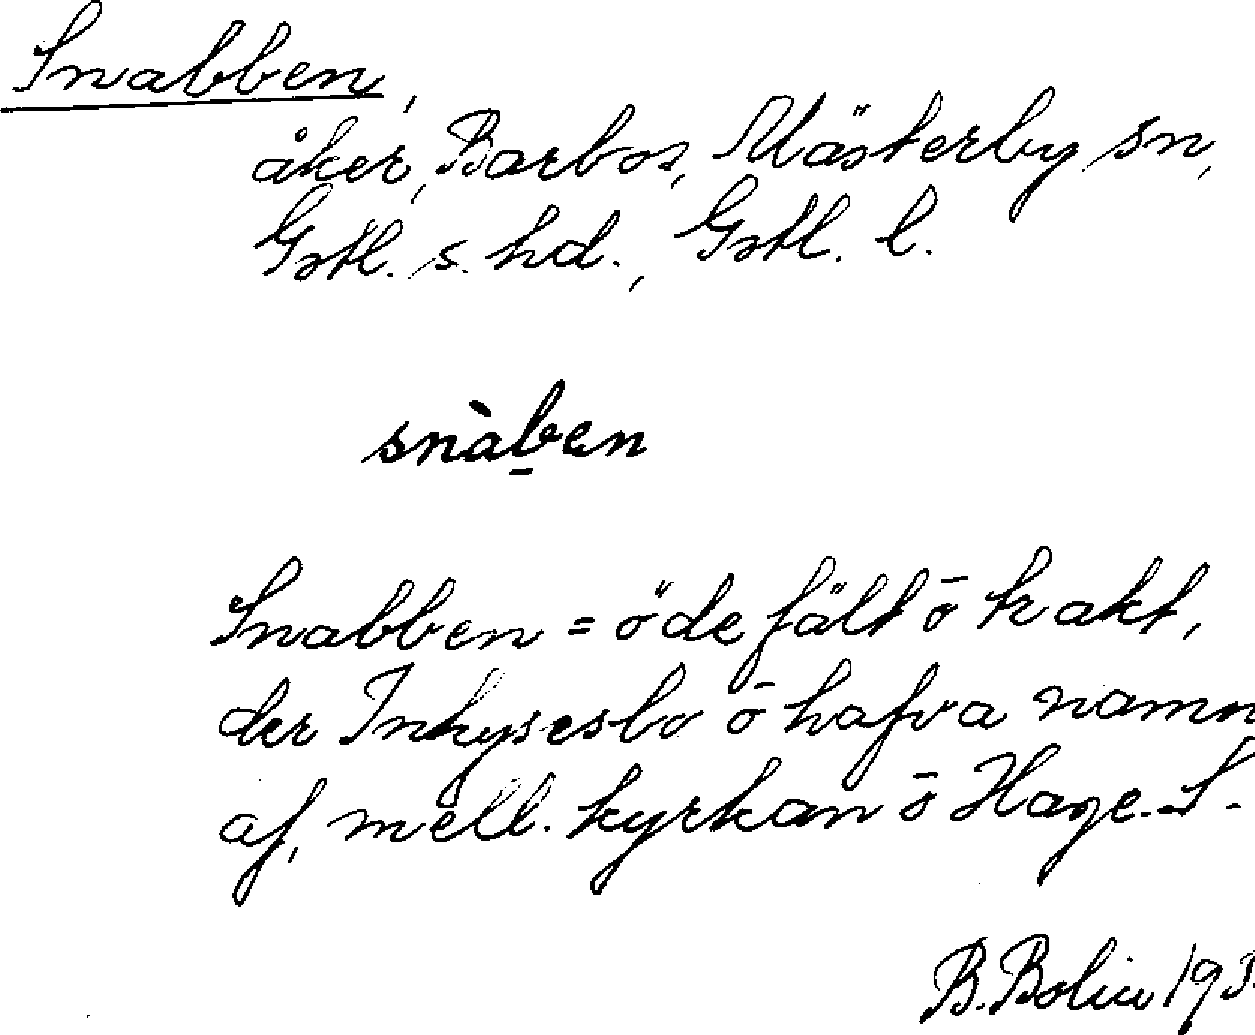 Snabben,
åker, Barbos, Mästerby sn,
Gotl. s. hd., Gotl. l.
snàb̲en
Snabben = öde fält ō trakt,
der Inhysesbo ō hafva namn
af, mell. kyrkan ō Hage. S.
B. Bolin 193